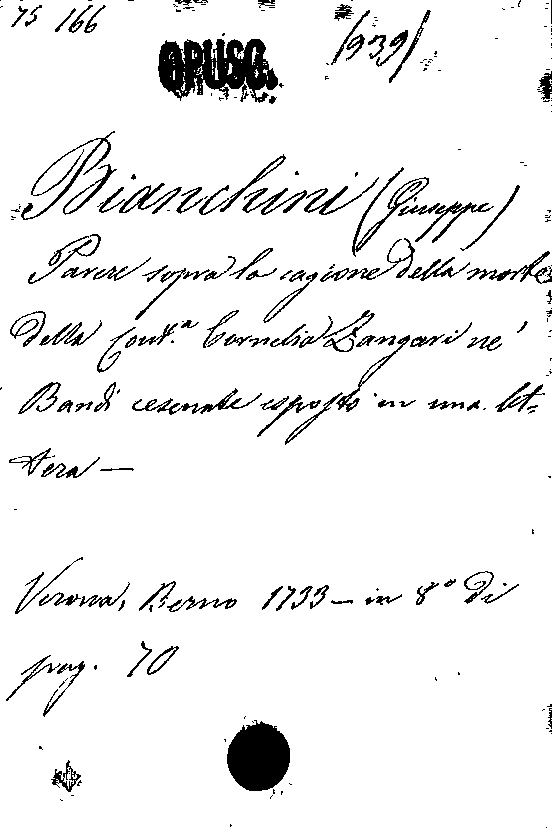 75 166
OPUSC. (939)
Bianchini (Giuseppe)
Parere sopra la cagione della morte
della Cont.ª Cornelia Zangari ne'
Bandi cesenate esposto in una let=
tera —
Verona, Berno 1733 — in 8º di
pag. 70